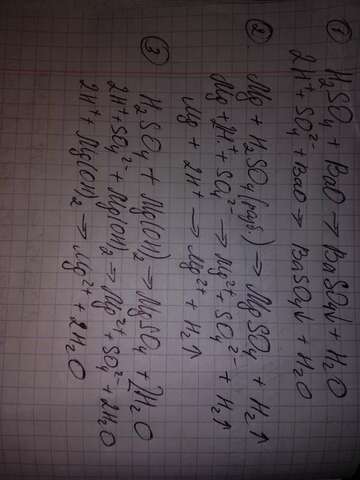 ① H₂SO₄ + BaO → BaSO₄↓ + H₂O
2H⁺ + SO₄²⁻ + BaO → BaSO₄↓ + H₂O
② Mg + H₂SO₄(разб.) → MgSO₄ + H₂↑
Mg + 2H⁺ + SO₄²⁻ → Mg²⁺ + SO₄²⁻ + H₂↑
Mg + 2H⁺ → Mg²⁺ + H₂↑
③ H₂SO₄ + Mg(OH)₂ → MgSO₄ + 2H₂O
2H⁺ + SO₄²⁻ + Mg(OH)₂ → Mg²⁺ + SO₄²⁻ + 2H₂O
2H⁺ + Mg(OH)₂ → Mg²⁺ + 2H₂O